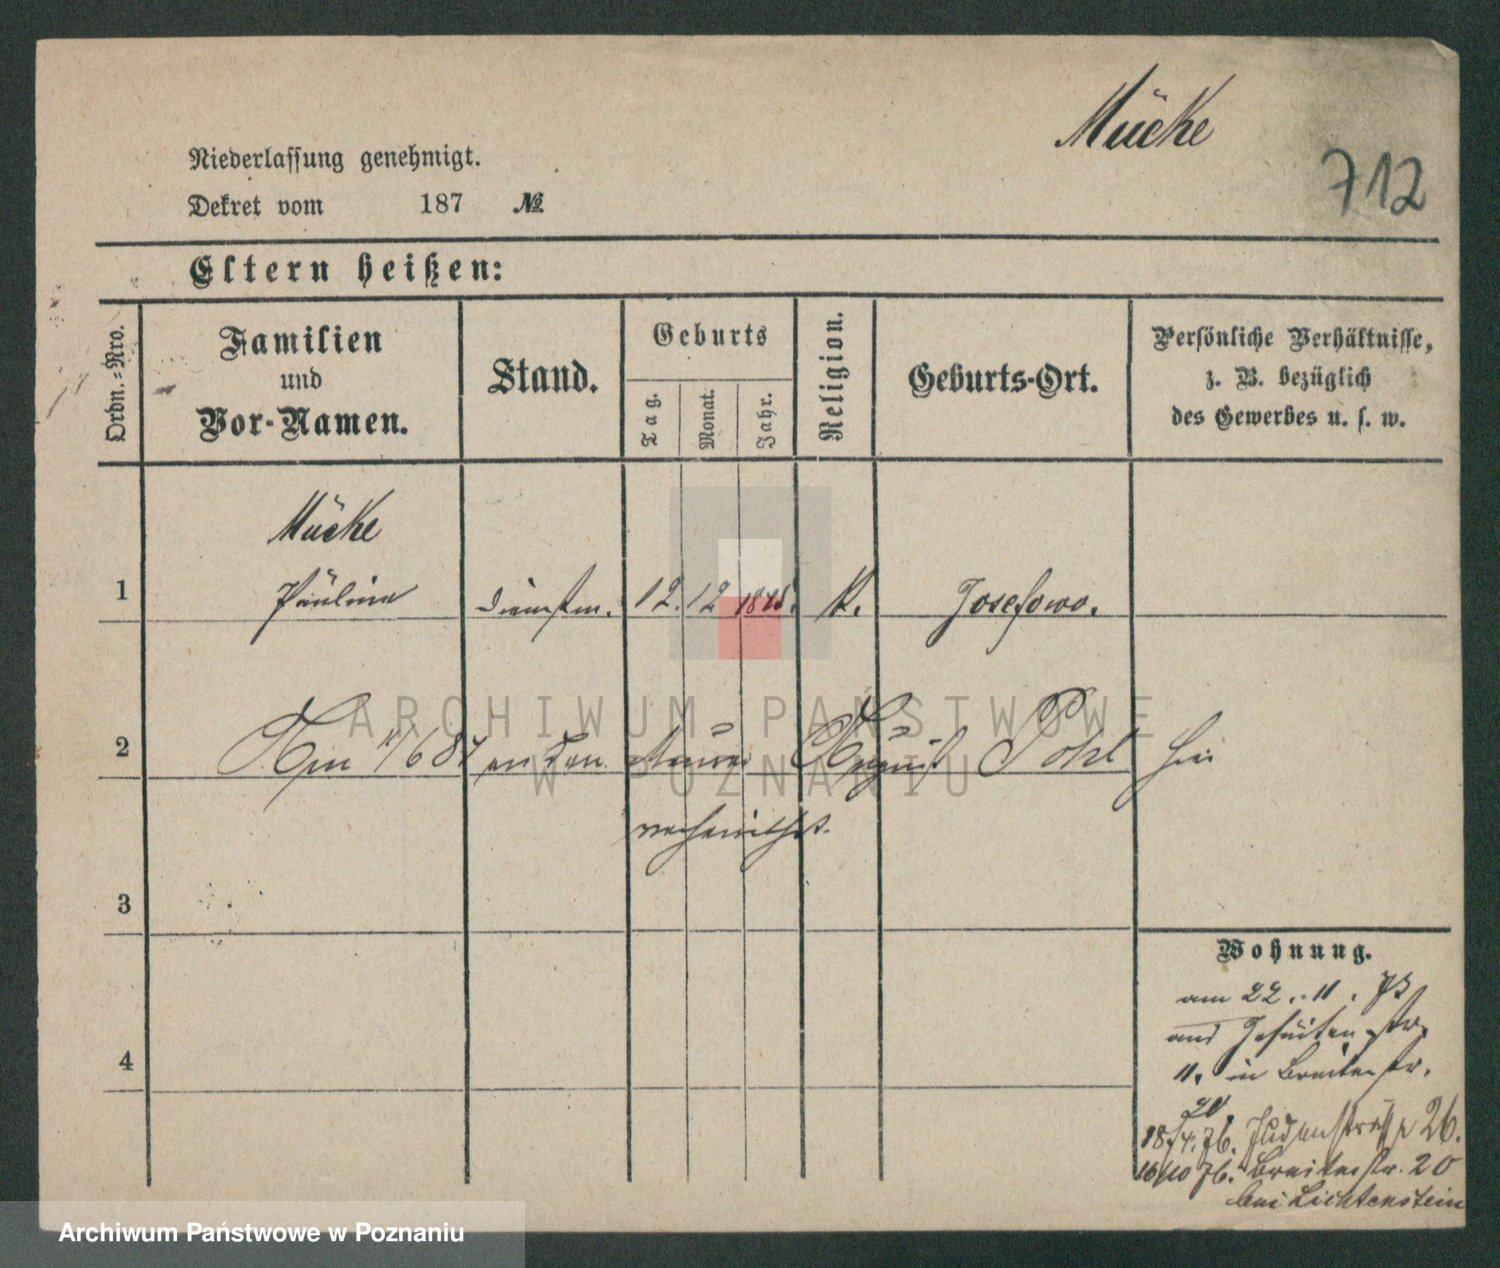 Mücke
712
Niederlassung genehmigt.
Dekret vom 187 №
Eltern heißen:
Ordn.-Nro.
Familien
und
Vor-Namen.
Stand.
Geburts
Tag.
Monat.
Jahr.
Religion.
Geburts-Ort.
Persönliche Verhältnisse,
z. B. bezüglich
des Gewerbes u. s. w.
Mücke
1 Pauline Dienstm. 12. 12 K. Josefowo.
ARCHIWUM PAŃSTWOWE
W POZNANIU
2 Am an den Maurer August Pohl hier
verheirathet.
3
4
Wohnung.
am 22. 11.
aus Jesuitenstr.
11. in Breitestr.
20
18/4. 76. Judenstraße 26.
16/10 76. Breitestr. 20
bei Lichtenstein
Archiwum Państwowe w Poznaniu